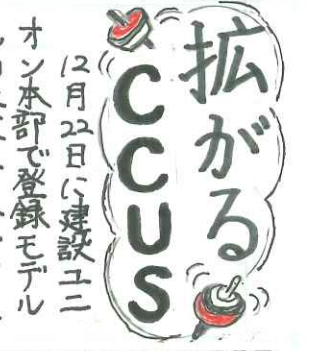 拡がる
CCUS
12月22日に建設ユニ
オン本部で登録モデル